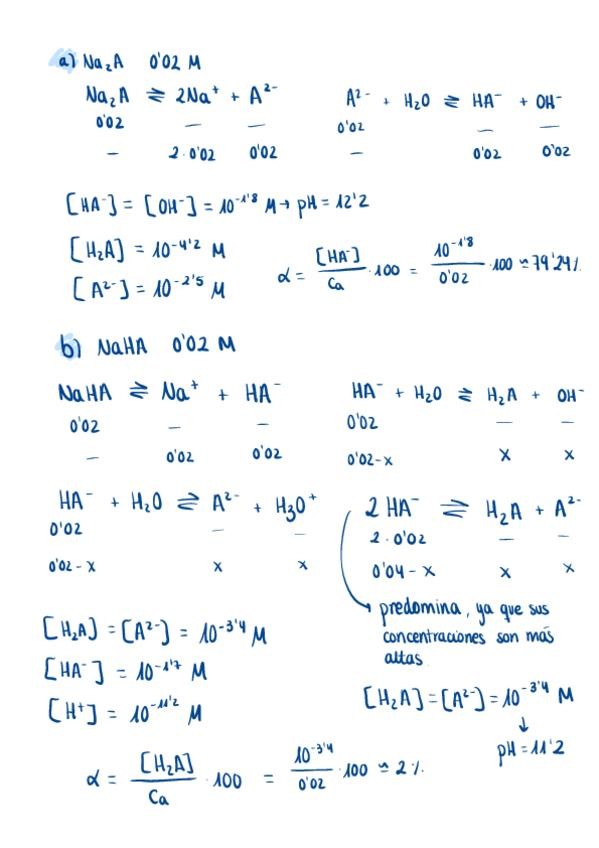 a) Na₂A 0'02 M
Na₂A ⇌ 2Na⁺ + A²⁻ A²⁻ + H₂O ⇌ HA⁻ + OH⁻
0'02 — — 0'02 — —
— 2·0'02 0'02 — 0'02 0'02
[HA⁻] = [OH⁻] = 10⁻¹'⁸ M → pH = 12'2
[H₂A] = 10⁻⁴'² M
[A²⁻] = 10⁻²'⁵ M
α = [HA⁻]/Ca · 100 = 10⁻¹'⁸/0'02 · 100 ≃ 79'24%
b) NaHA 0'02 M
NaHA ⇌ Na⁺ + HA⁻ HA⁻ + H₂O ⇌ H₂A + OH⁻
0'02 — — 0'02 — —
— 0'02 0'02 0'02-x x x
HA⁻ + H₂O ⇌ A²⁻ + H3O⁺ 2 HA⁻ ⇌ H₂A + A²⁻
0'02 — — 2·0'02 — —
0'02-x x x 0'04-x x x
predomina, ya que sus
concentraciones son más
altas
[H₂A] = [A²⁻] = 10⁻³'⁴ M
[HA⁻] = 10⁻¹'⁷ M
[H⁺] = 10⁻¹¹'² M
[H₂A] = [A²⁻] = 10⁻³'⁴ M
↓
pH = 11'2
α = [H₂A]/Ca · 100 = 10⁻³'⁴/0'02 · 100 ≃ 2%